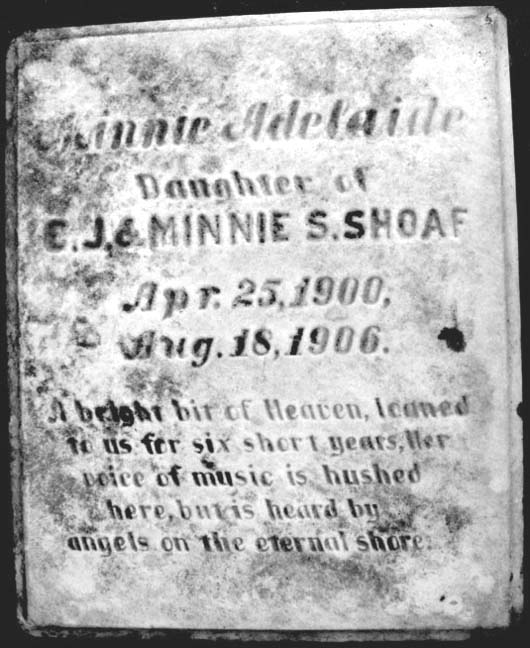 Minnie Adelaide
Daughter of
C. J. & MINNIE S. SHOAF
Apr. 25, 1900,
Aug. 18, 1906.
A bright bit of Heaven, loaned
to us for six short years, Her
voice of music is hushed
here, but is heard by
angels on the eternal shore.